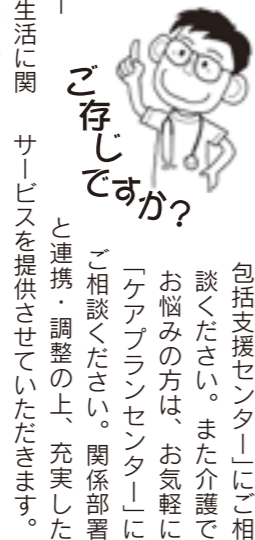 ご存じですか？
包括支援センター」にご相
談ください。また介護で
お悩みの方は、お気軽に
「ケアプランセンター」に
ご相談ください。関係部署
と連携・調整の上、充実した
サービスを提供させていただきます。
ー
生活に関